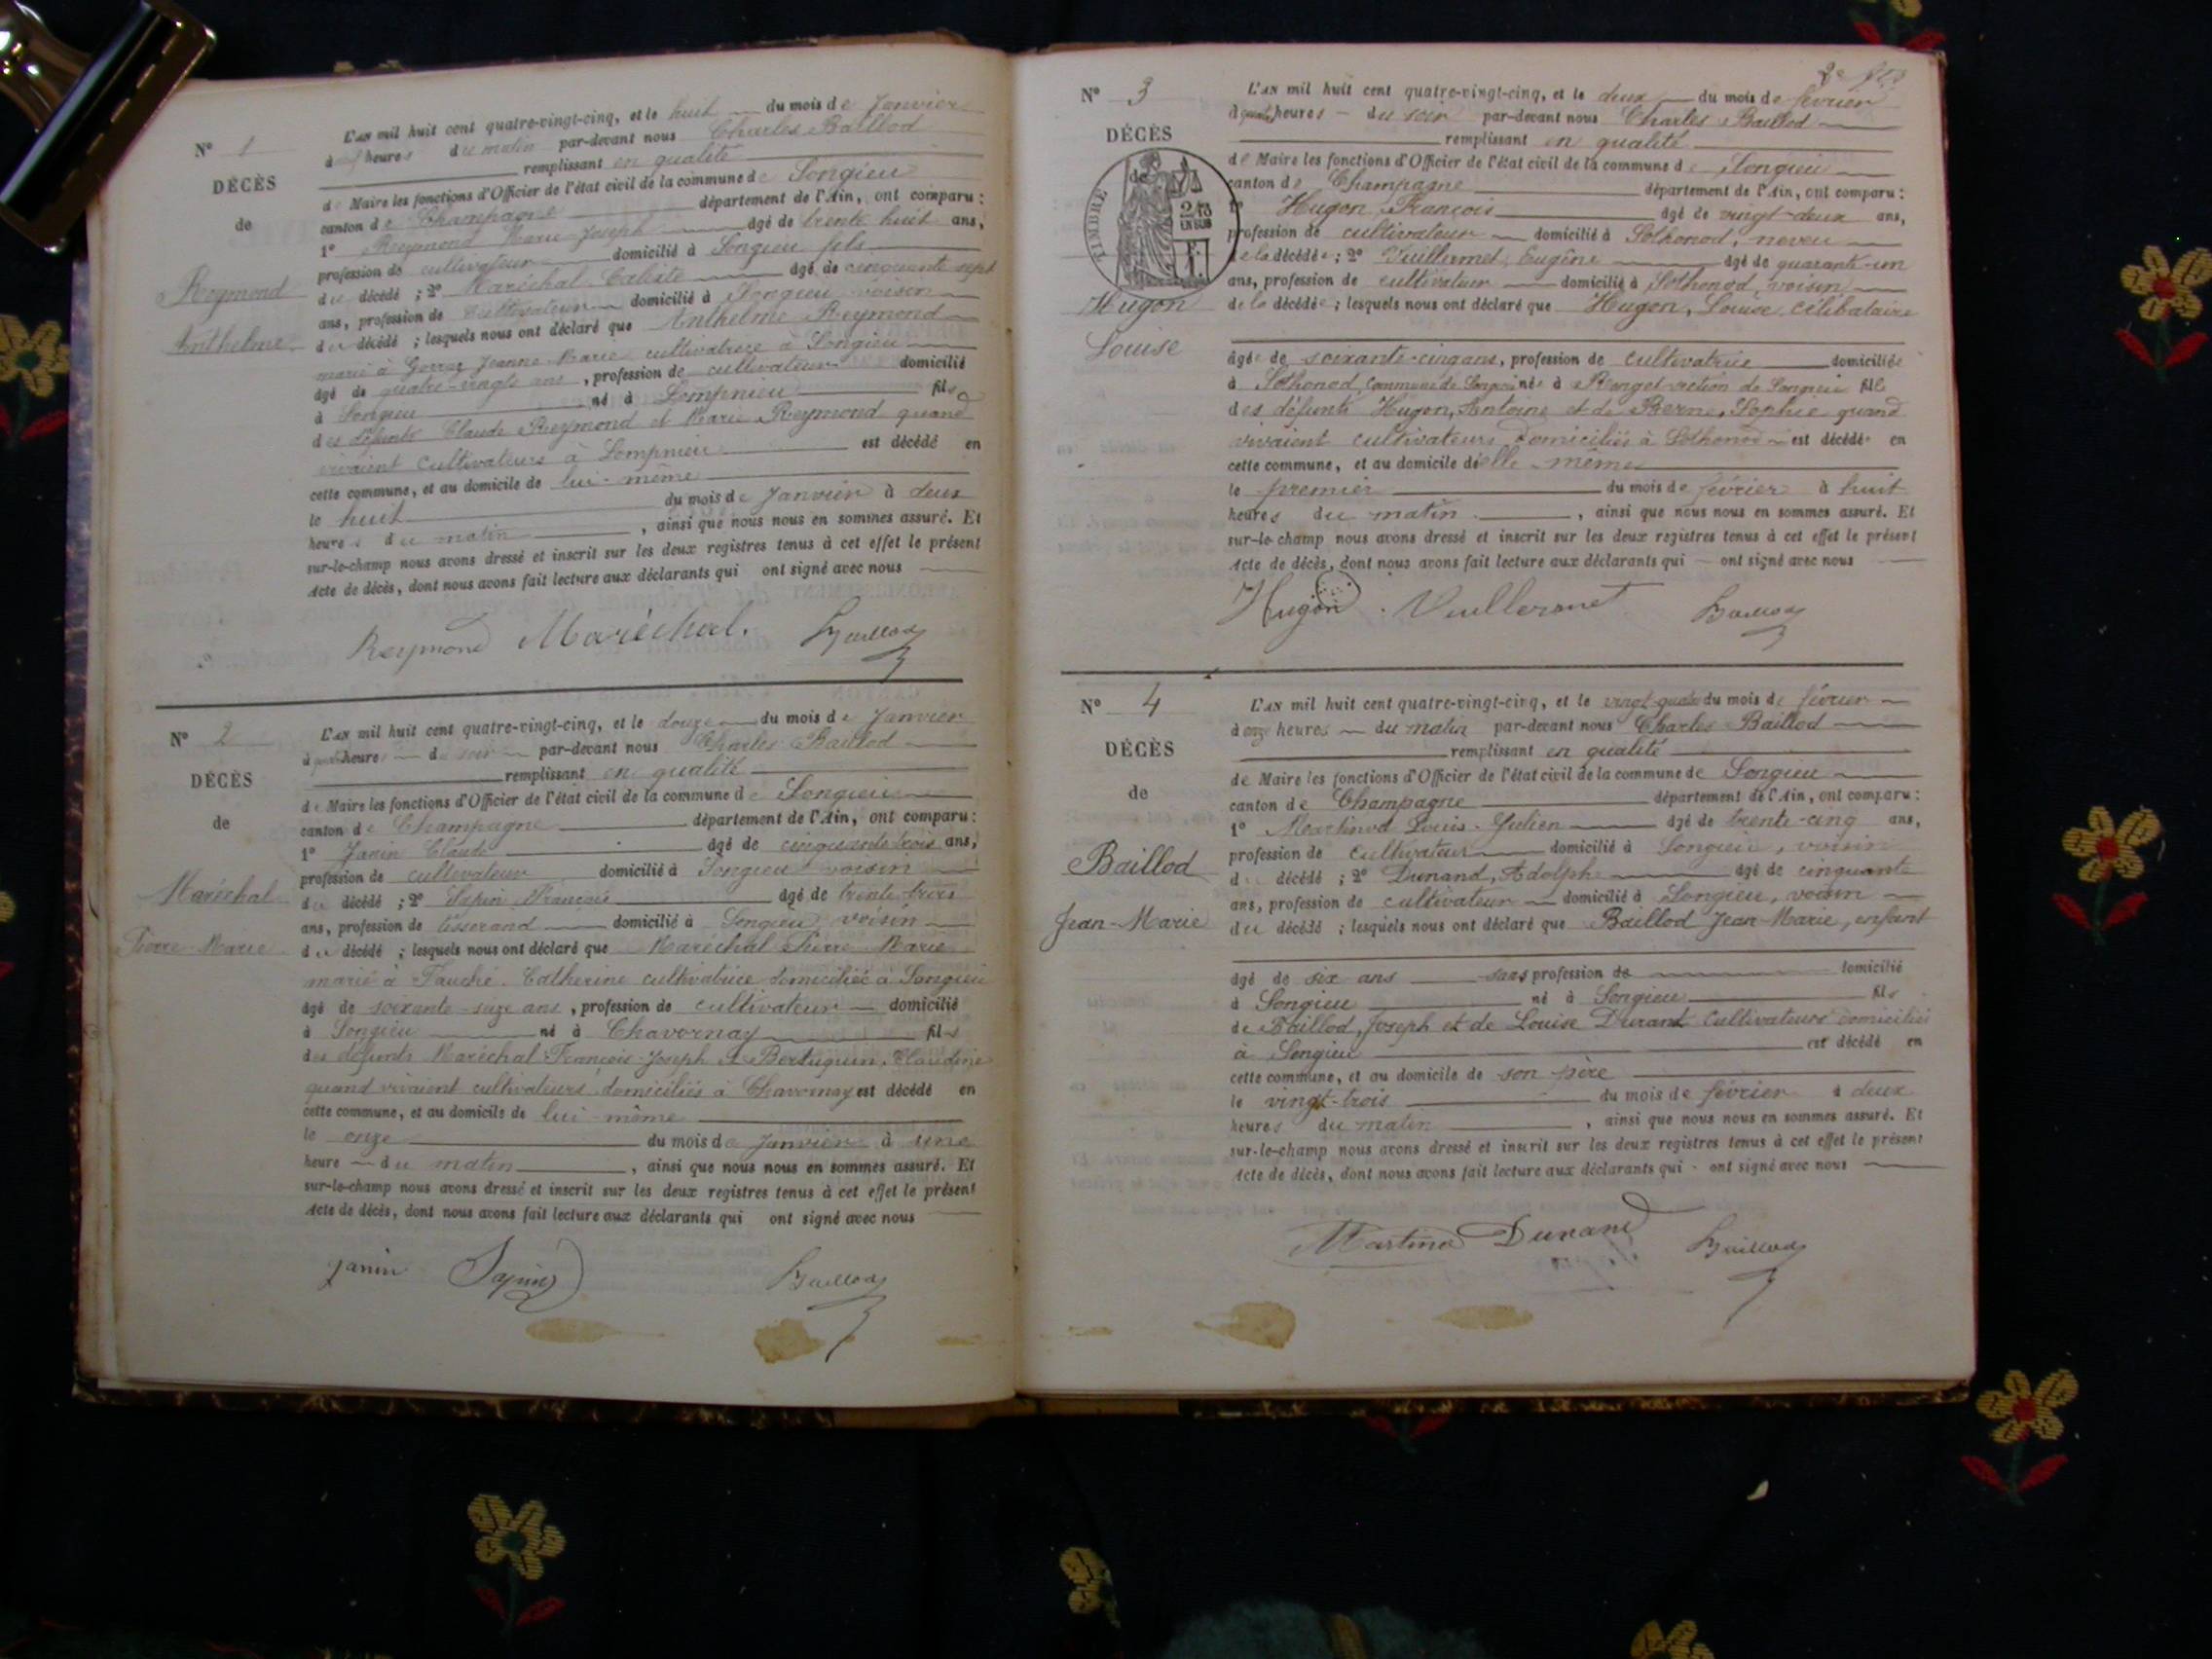 N° 1
DÉCÈS
de
Reymond
Anthelme
L'an mil huit cent quatre-vingt-cinq, et le huit du mois de Janvier
à heures du matin par-devant nous Charles Baillod
remplissant en qualité
de Maire les fonctions d'Officier de l'état civil de la commune de Songieu
canton de Champagne département de l'Ain, ont comparu :
1° Reymond Marie Joseph âgé de trente huit ans,
profession de cultivateur domicilié à Songieu fils
du décédé ; 2° Maréchal Caliste âgé de cinquante sept
ans, profession de cultivateur domicilié à Songieu voisin
du décédé ; lesquels nous ont déclaré que Anthelme Reymond
marié à Jeanne Marie cultivatrice à Songieu
âgé de quatre-vingts ans, profession de cultivateur domicilié
à Songieu né à Lompnieu fils
des défunts Claude Reymond et Marie Reymond quand
vivaient cultivateurs à Lompnieu est décédé en
cette commune, et au domicile de lui-même
le huit du mois de Janvier à deux
heures du matin, ainsi que nous nous en sommes assuré. Et
sur-le-champ nous avons dressé et inscrit sur les deux registres tenus à cet effet le présent
Acte de décès, dont nous avons fait lecture aux déclarants qui ont signé avec nous
Reymond Maréchal. Baillod
N° 2
DÉCÈS
de
Maréchal
Pierre-Marie
L'an mil huit cent quatre-vingt-cinq, et le douze du mois de Janvier
à heures du soir par-devant nous Charles Baillod
remplissant en qualité
de Maire les fonctions d'Officier de l'état civil de la commune de Songieu
canton de Champagne département de l'Ain, ont comparu :
1° Janin Claude âgé de cinquante trois ans,
profession de cultivateur domicilié à Songieu voisin
du décédé ; 2° Sapin François âgé de trente trois
ans, profession de tisserand domicilié à Songieu voisin
du décédé ; lesquels nous ont déclaré que Maréchal Pierre Marie
marié à Fauché Catherine cultivatrice domiciliée à Songieu
âgé de soixante-seize ans, profession de cultivateur domicilié
à Songieu né à Chavornay fils
des défunts Maréchal François-Joseph et Bertuquin, Claudine
quand vivaient cultivateurs domiciliés à Chavornay est décédé en
cette commune, et au domicile de lui-même
le onze du mois de Janvier à une
heure du matin, ainsi que nous nous en sommes assuré. Et
sur-le-champ nous avons dressé et inscrit sur les deux registres tenus à cet effet le présent
Acte de décès, dont nous avons fait lecture aux déclarants qui ont signé avec nous
Janin Sapin Baillod
N° 3
DÉCÈS
de
TIMBRE
Hugon
Louise
L'an mil huit cent quatre-vingt-cinq, et le deux du mois de février
à quatre heures du soir par-devant nous Charles Baillod
remplissant en qualité
de Maire les fonctions d'Officier de l'état civil de la commune de Songieu
canton de Champagne département de l'Ain, ont comparu :
1° Hugon, François âgé de vingt-deux ans,
profession de cultivateur domicilié à Sothonod, neveu
de la décédée ; 2° Vuillermet, Eugène âgé de quarante-un
ans, profession de cultivateur domicilié à Sothonod, voisin
de la décédée ; lesquels nous ont déclaré que Hugon, Louise, célibataire
âgée de soixante-cinq ans, profession de cultivatrice domiciliée
à Sothonod, commune de Songieu née à section de Songieu fille
des défunts Hugon, Antoine et de Berne, Sophie quand
vivaient cultivateurs domiciliés à Sothonod est décédée en
cette commune, et au domicile d'elle même
le premier du mois de février à huit
heures du matin, ainsi que nous nous en sommes assuré. Et
sur-le-champ nous avons dressé et inscrit sur les deux registres tenus à cet effet le présent
Acte de décès, dont nous avons fait lecture aux déclarants qui ont signé avec nous
Hugon Vuillermet Baillod
N° 4
DÉCÈS
de
Baillod
Jean-Marie
L'an mil huit cent quatre-vingt-cinq, et le vingt-quatre du mois de février
à onze heures du matin par-devant nous Charles Baillod
remplissant en qualité
de Maire les fonctions d'Officier de l'état civil de la commune de Songieu
canton de Champagne département de l'Ain, ont comparu :
1° Martinod Louis-Julien âgé de trente-cinq ans,
profession de cultivateur domicilié à Songieu, voisin
du décédé ; 2° Dunand, Adolphe âgé de cinquante
ans, profession de cultivateur domicilié à Songieu, voisin
du décédé ; lesquels nous ont déclaré que Baillod Jean-Marie, enfant
âgé de six ans sans profession de domicilié
à Songieu né à Songieu fils
de Baillod, Joseph et de Louise Durant cultivateurs domiciliés
à Songieu est décédé en
cette commune, et au domicile de son père
le vingt-trois du mois de février à deux
heures du matin, ainsi que nous nous en sommes assuré. Et
sur-le-champ nous avons dressé et inscrit sur les deux registres tenus à cet effet le présent
Acte de décès, dont nous avons fait lecture aux déclarants qui ont signé avec nous
Martinod Dunand Baillod